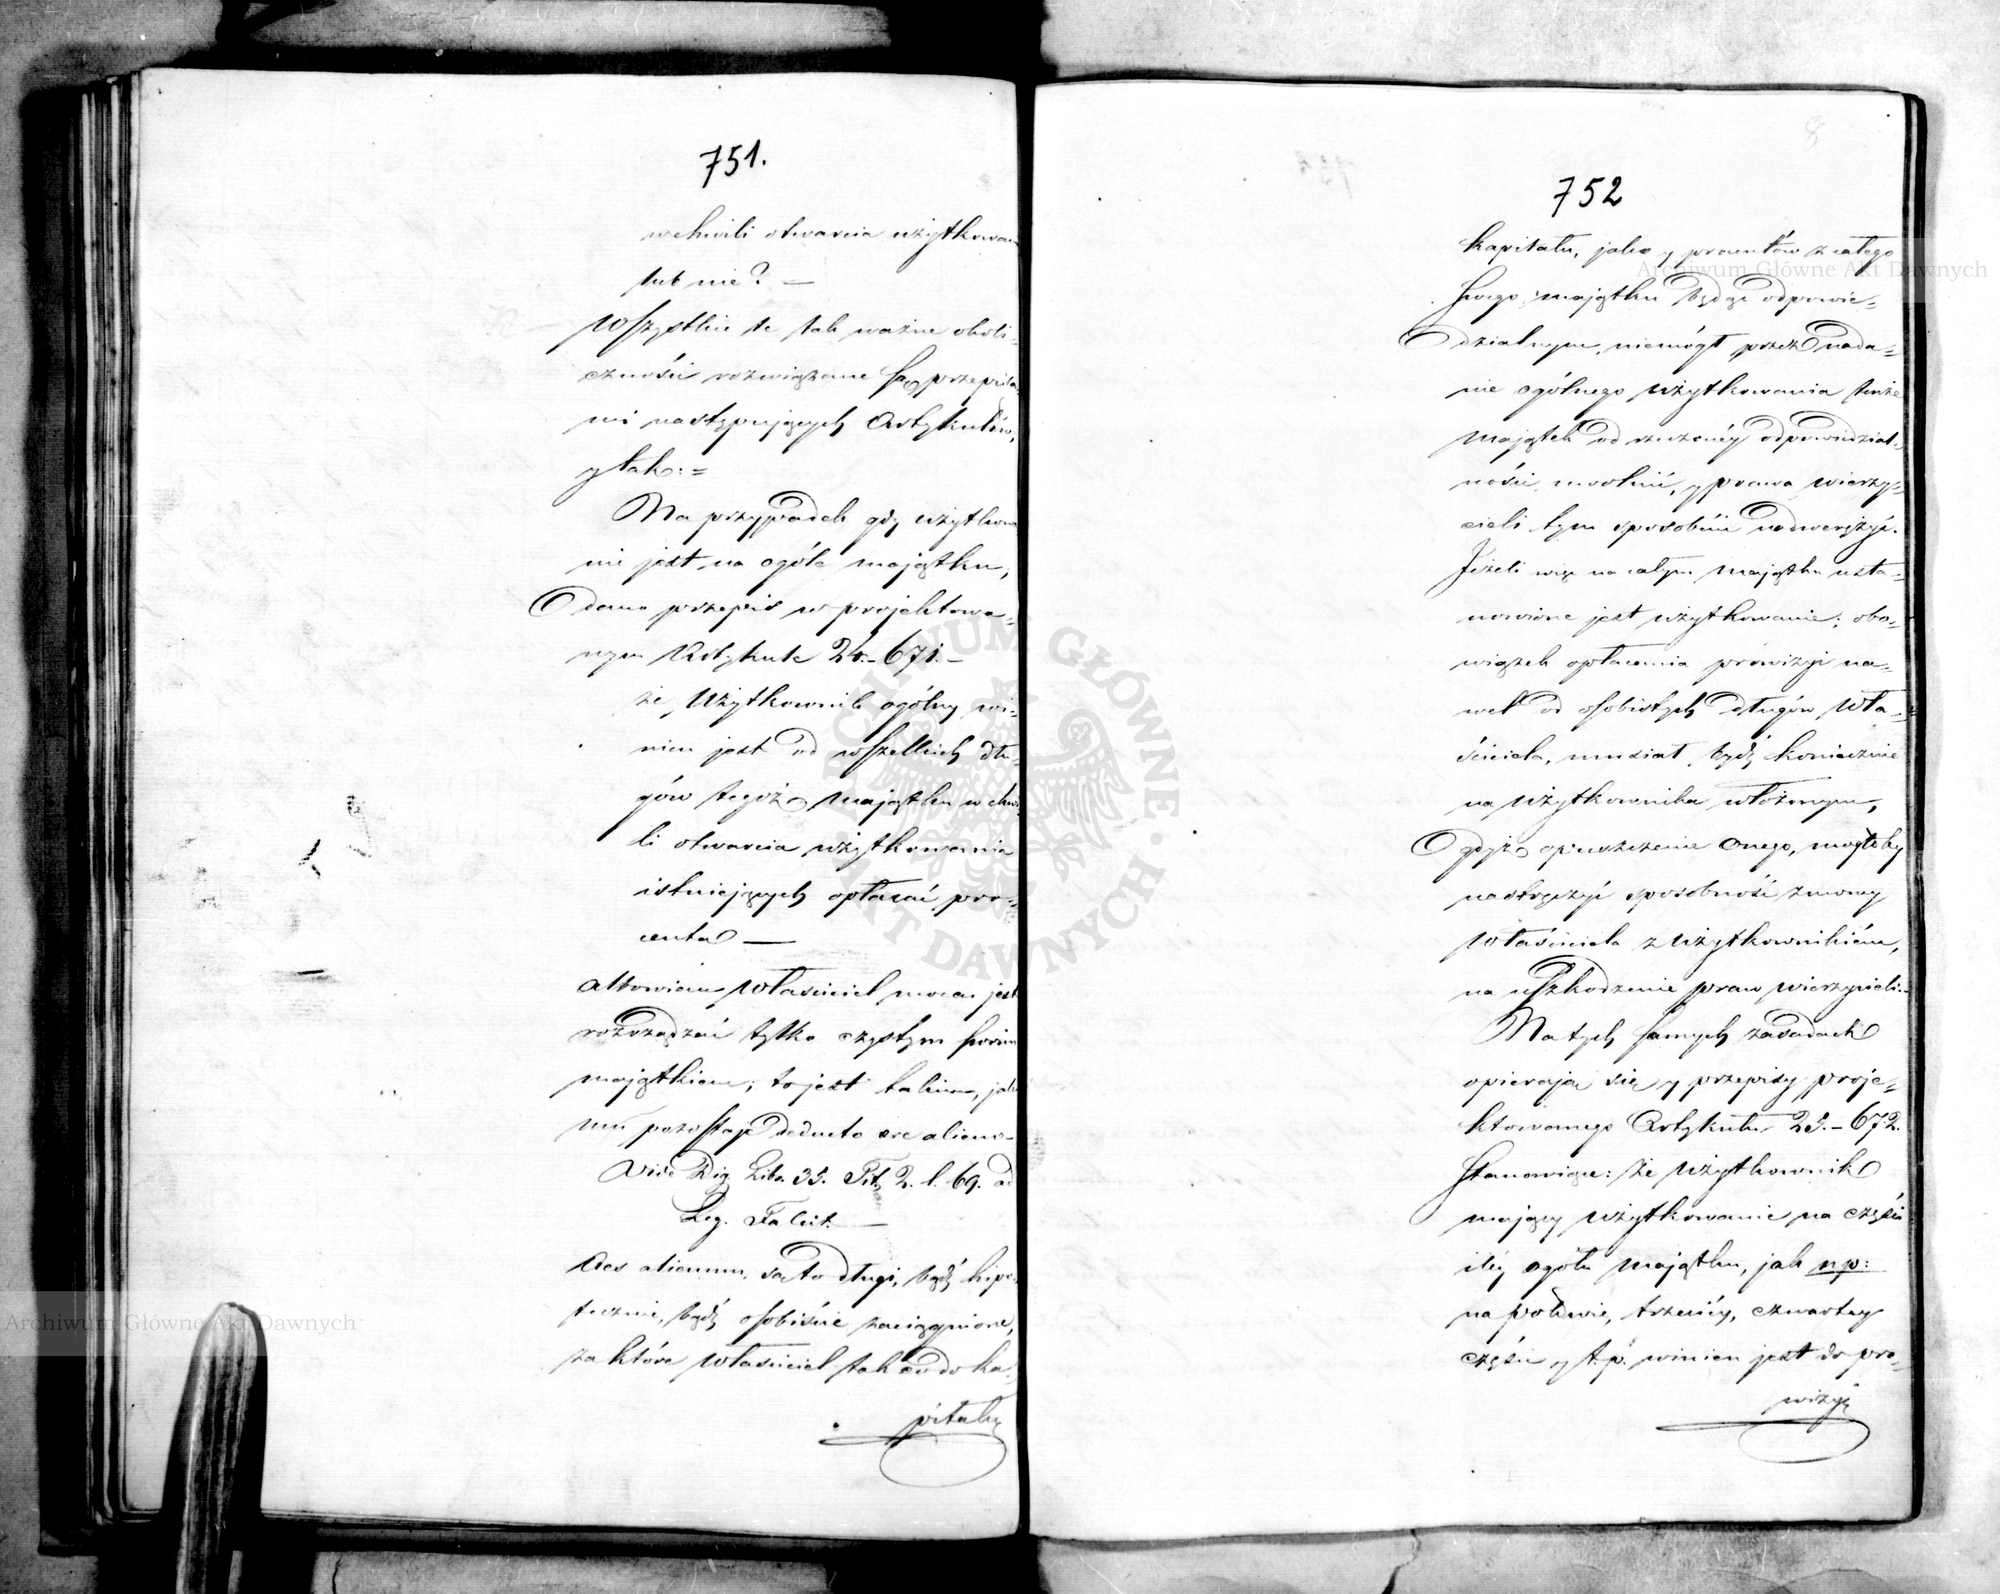 751.
w chwili otwarcia użytkowan
lub nie? —
Wszystkie te tak ważne okoli-
czności rozwiązane są przepisa
mi następujących Artykułów,
y tak:=
Na przypadek gdy użytkowa
nie jest na ogóle majątku,
dano przepis w projektowa-
nym Artykule 24.-671.-
że Użytkownik ogólny wi-
nien jest od wszelkich dłu-
gów tegoż majątku w chwi
li otwarcia użytkowania
istniejących opłacać pro-
centa —
albowiem Właściciel mocen jest
rozrządzać tylko czystym swoim
majątkiem; to jest takim, jaki
mu pozostaje deducto aere alieno-
Vide Dig. Libr. 35. Tit. 2. l. 69. ad
Leg. Falcit. —
Aes alienum, są to długi, bądź hipo-
tecznie, bądź osobiście zaciągnione,
za które Właściciel tak co do ka-
pitału
8
752
kapitału, jako y procentów z całego
swego majątku będąc odpowie-
dzialnym, niemógł przez nada-
nie ogólnego użytkowania tenże
majątek od rzeczonéy odpowiedzial-
ności uwolnić, y prawa wierzy-
cieli tym sposobem nadwerężyć.
Jeżeli więc na całym majątku usta-
nowione jest użytkowanie; obo-
wiązek opłacania prowizyi na-
wet od osobistych długów Wła-
ściciela, musiał bydź koniecznie
na użytkownika włożonym,
gdyż opuszczenie onego, mogłoby
nastręczyć sposobność zmowy
Właściciela z Użytkownikiem,
na uszkodzenie praw wierzycieli.-
Na tych samych zasadach
opierają się y przepisy proje-
ktowanego Artykułu 25.-672.
stanowiące: że użytkownik
mający użytkowanie na części
iléy ogółu majątku, jak np:
na połowie, trzeciéy, czwartey
części y t.p. winien jest do pro-
wizyi
Archiwum Główne Akt Dawnych
Archiwum Główne Akt Dawnych
ARCHIWUM GŁÓWNE · AKT DAWNYCH ·